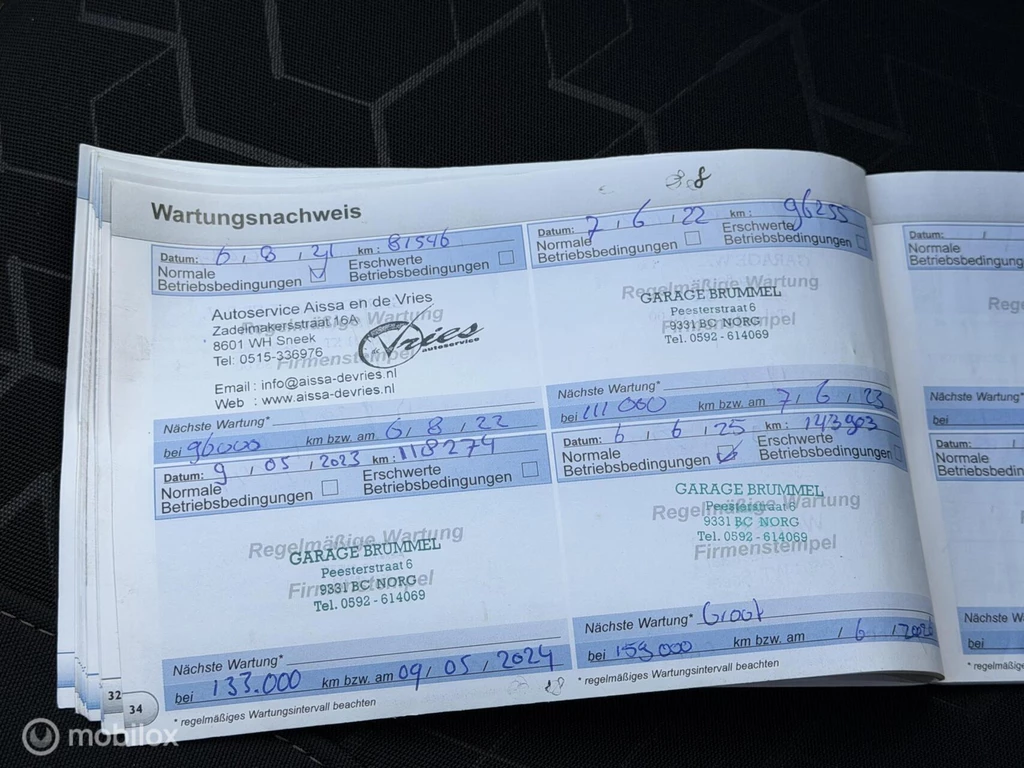 Wartungsnachweis
Datum: 6, 8, 21 km: 81546
Normale Betriebsbedingungen
Erschwerte Betriebsbedingungen
Autoservice Aissa en de Vries
Zadelmakersstraat 16A
8601 WH Sneek
Tel: 0515-336976
Email : info@aissa-devries.nl
Web : www.aissa-devries.nl
Vries
autoservice
Regelmäßige Wartung
Firmenstempel
Nächste Wartung*
bei 96000 km bzw. am 6, 8, 22
Datum: 7, 6, 22 km: 96255
Normale Betriebsbedingungen
Erschwerte Betriebsbedingungen
Regelmäßige Wartung
GARAGE BRUMMEL
Peesterstraat 6
9331 BC NORG
Tel. 0592 - 614069
Firmenstempel
Nächste Wartung*
bei 111 000 km bzw. am 7, 6, 23
Datum: 9, 05, 2023 km: 118274
Normale Betriebsbedingungen
Erschwerte Betriebsbedingungen
Regelmäßige Wartung
GARAGE BRUMMEL
Peesterstraat 6
9331 BC NORG
Tel. 0592 - 614069
Firmenstempel
Nächste Wartung*
bei 133.000 km bzw. am 09, 05, 2024
* regelmäßiges Wartungsintervall beachten
Datum: 6, 6, 25 km: 143903
Normale Betriebsbedingungen
Erschwerte Betriebsbedingungen
GARAGE BRUMMEL
Regelmäßige Wartung
Peesterstraat 6
9331 BC NORG
Tel. 0592 - 614069
Firmenstempel
Nächste Wartung* Groot
bei 159.000 km bzw. am , 6, 2026
* regelmäßiges Wartungsintervall beachten
32
34
Datum:
Normale
Betriebsbedingungen
Nächste Wartung*
bei
Datum:
Normale
Nächste Wartung*
bei
mobilox